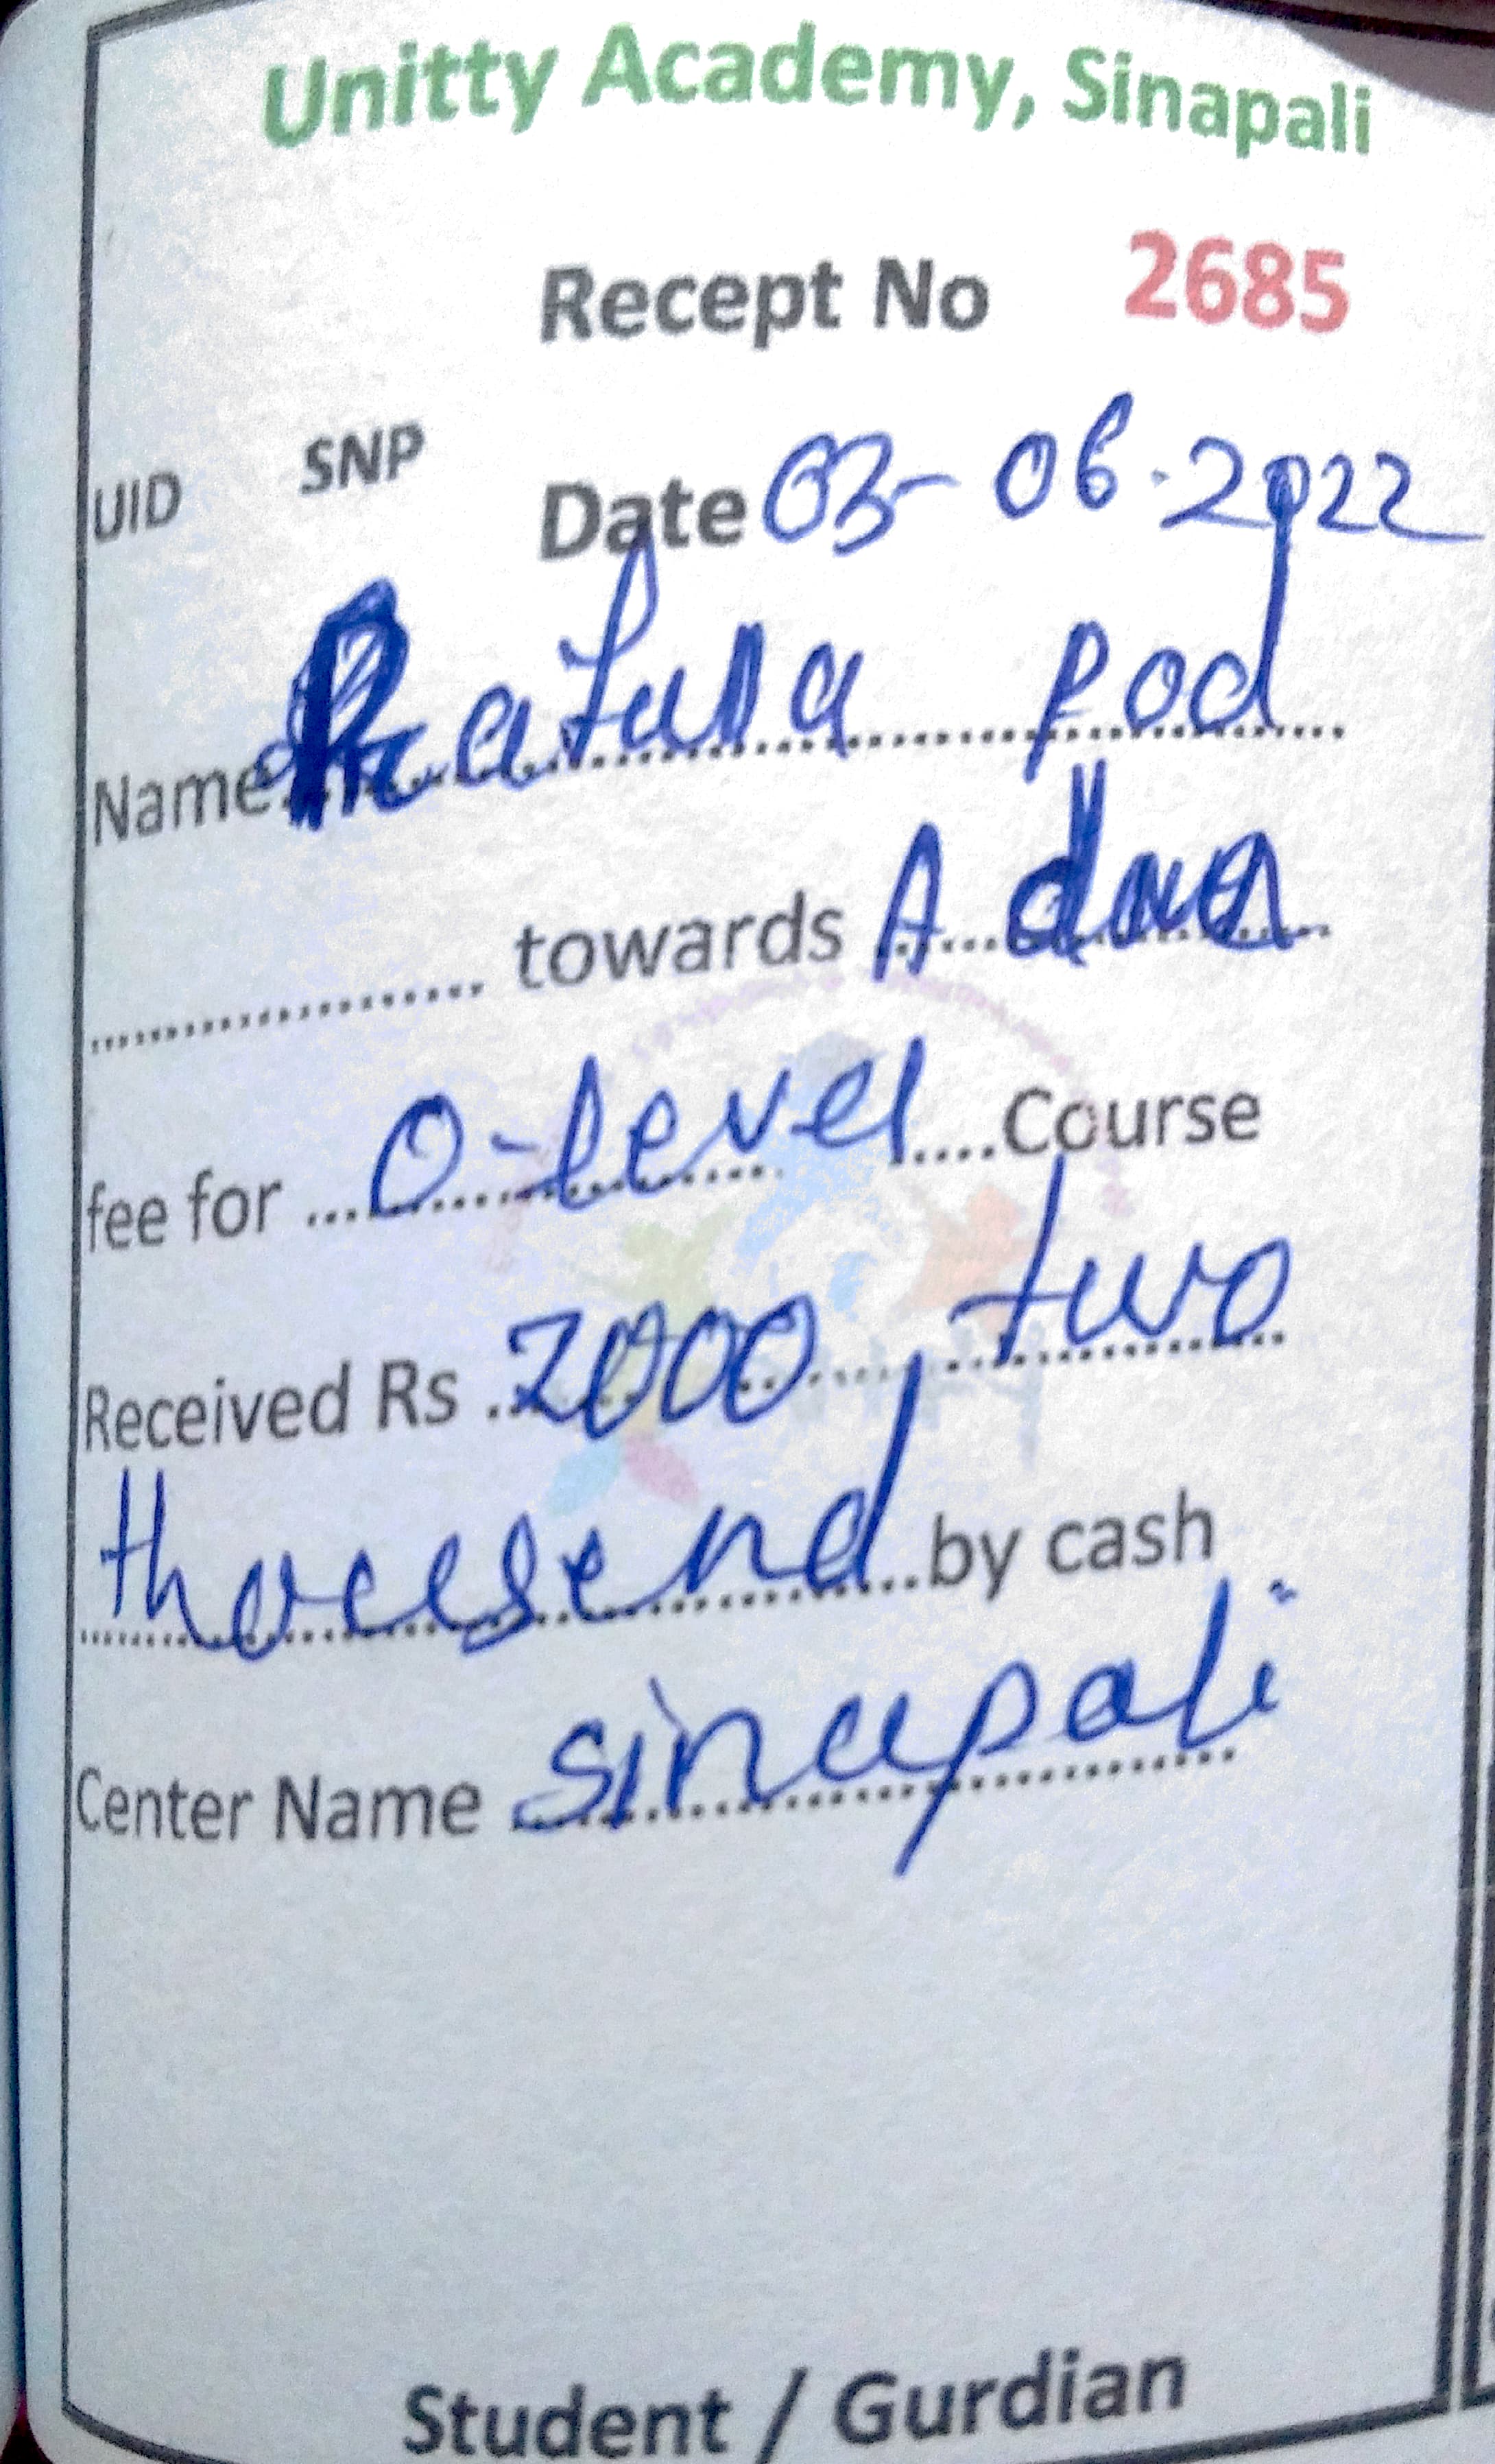 Unitty Academy, Sinapali
Recept No 2685
UID SNP Date 03-06-2022
Name Ratuna pod
towards A
fee for O-level Course
Received Rs 2000, two
thousend by cash
Center Name sinapali
Student / Gurdian